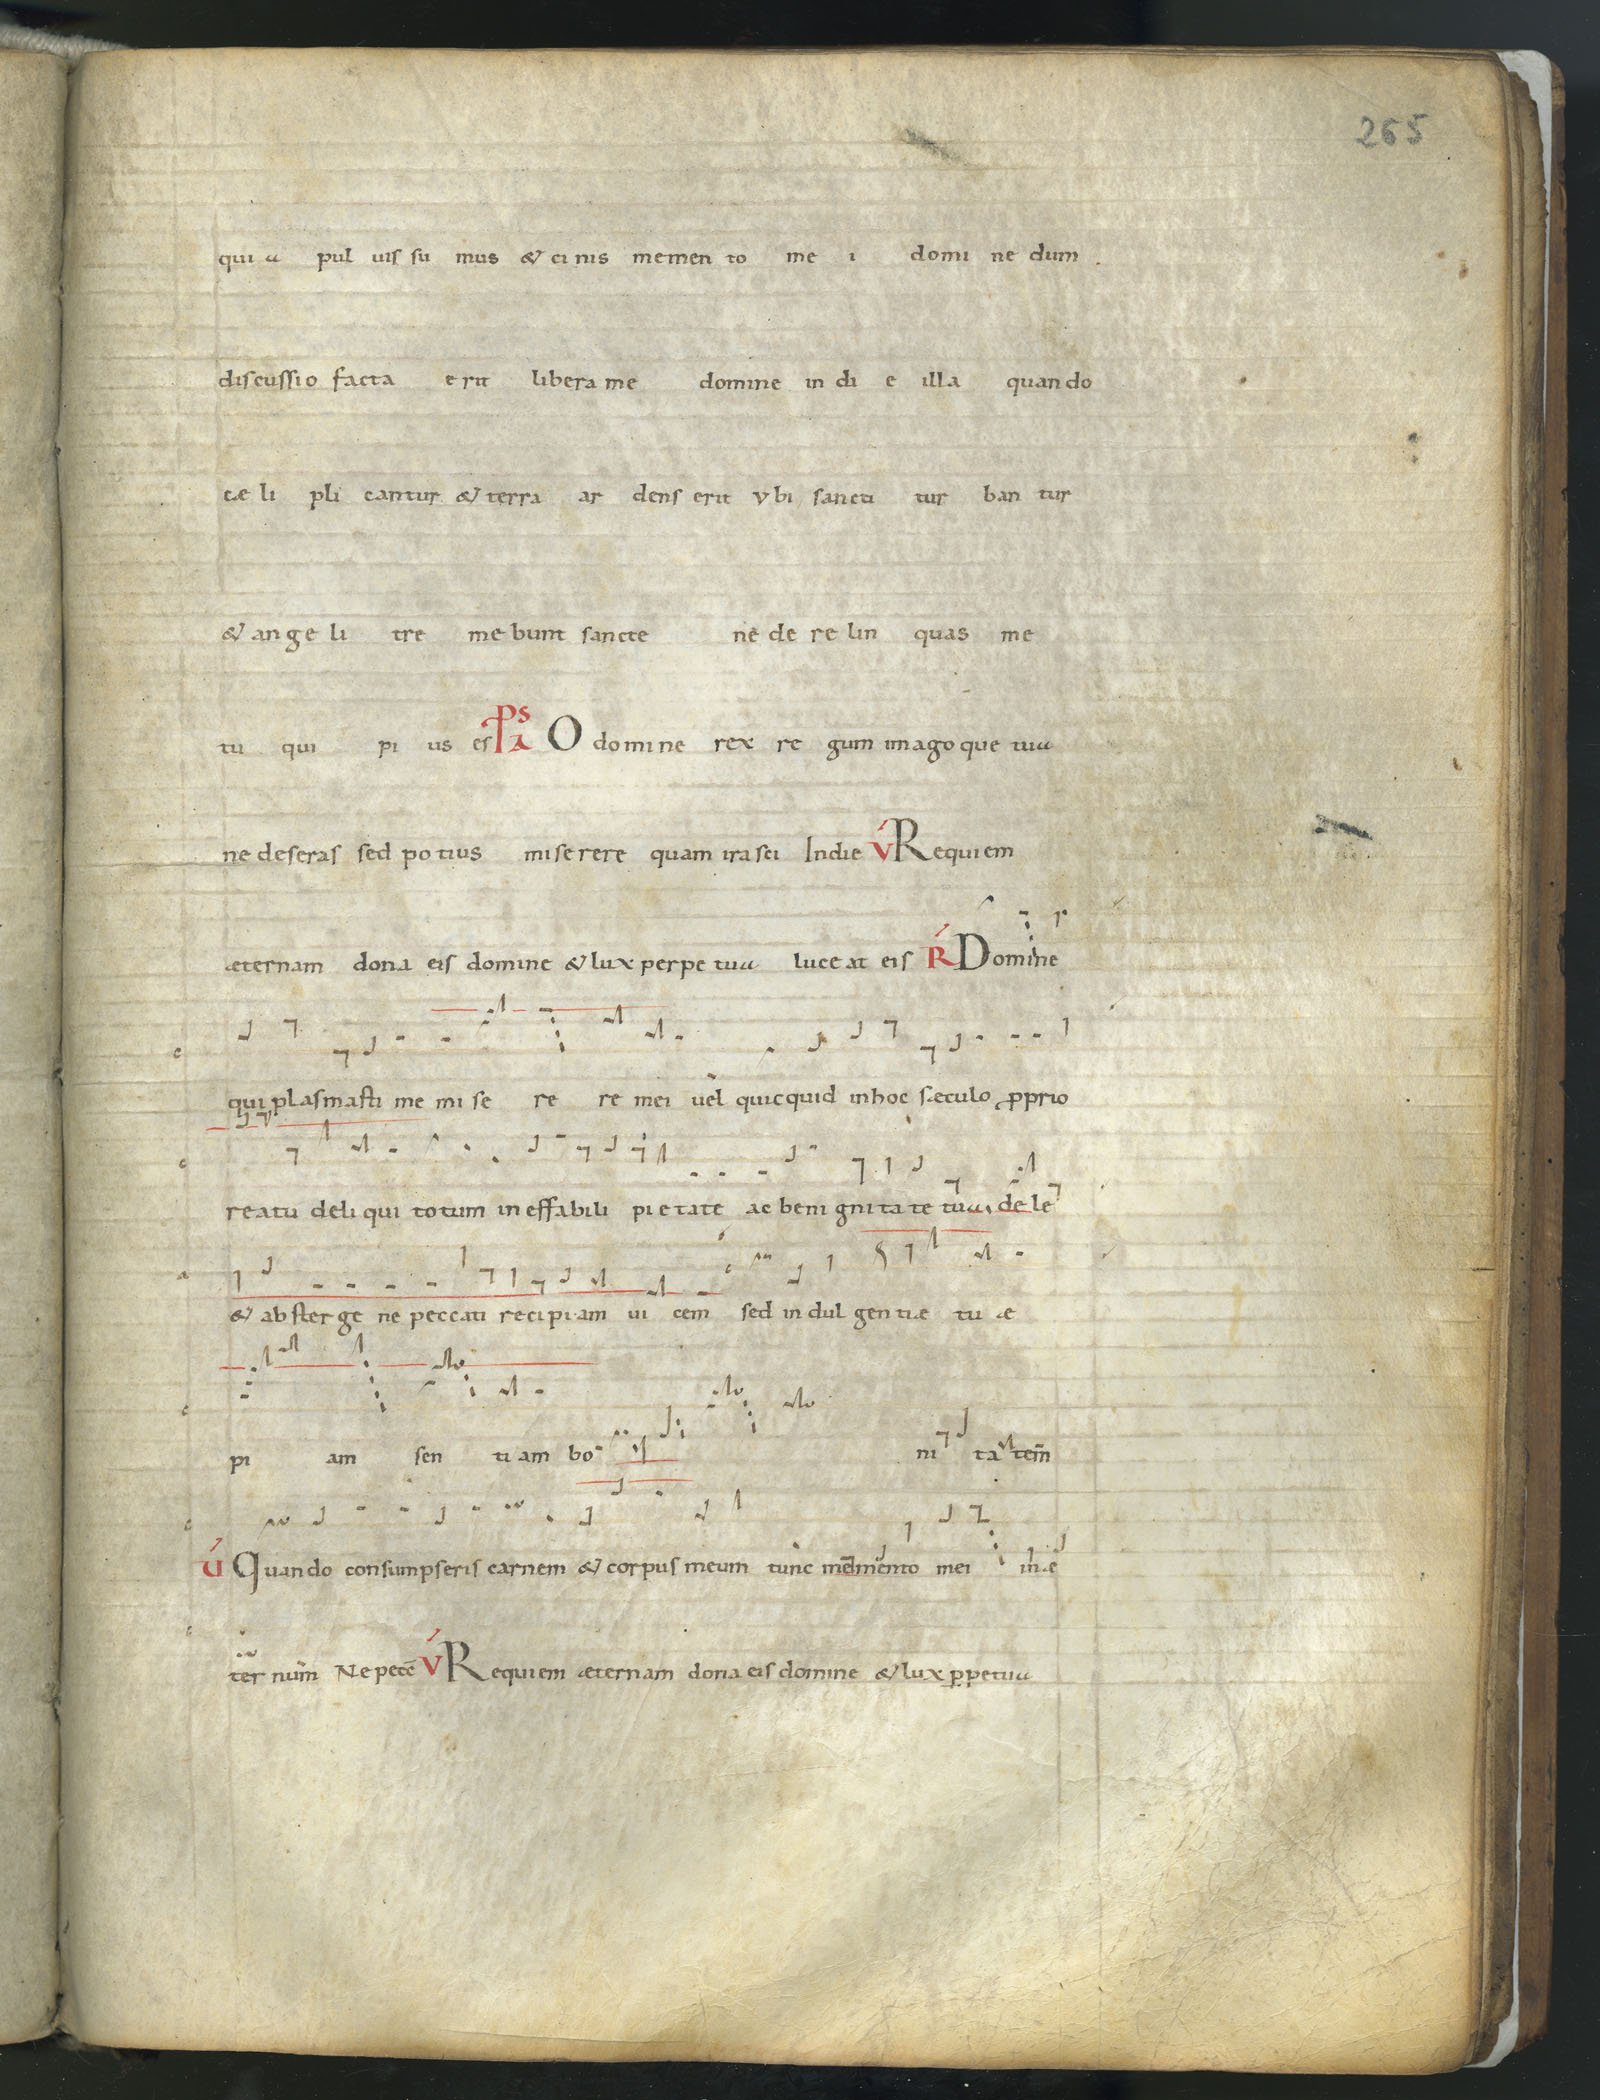 265
qui a pul uis su mus & ci nis memen to me i domi ne dum
discussio facta erit libera me domine in di e illa quando
cæ li pli cantur & terra ar dens erit vbi sancti tur ban tur
& an ge li tre me bunt sancte ne de re lin quas me
tu qui pi us es Ps A O domine rex re gum imago que tua
ne deseras sed potius miserere quam irasci Indie V Requiem
æternam dona eis domine & lux perpe tua luceat eis R Domine
qui plasmasti me mi se re re mei uel quicquid inhoc sæculo pprio
reatu deli qui totum in effabili pietate ac beni gnitate tua, de le
& ab sterge ne peccati recipiam ui cem sed in dul gentiæ tu æ
pi am sen ti am bo ni ta tem
V Quando consumpseris carnem & corpus meum tunc memento mei in æ
ter num Ne pecē V Requiem æternam dona eis domine & lux ppetua